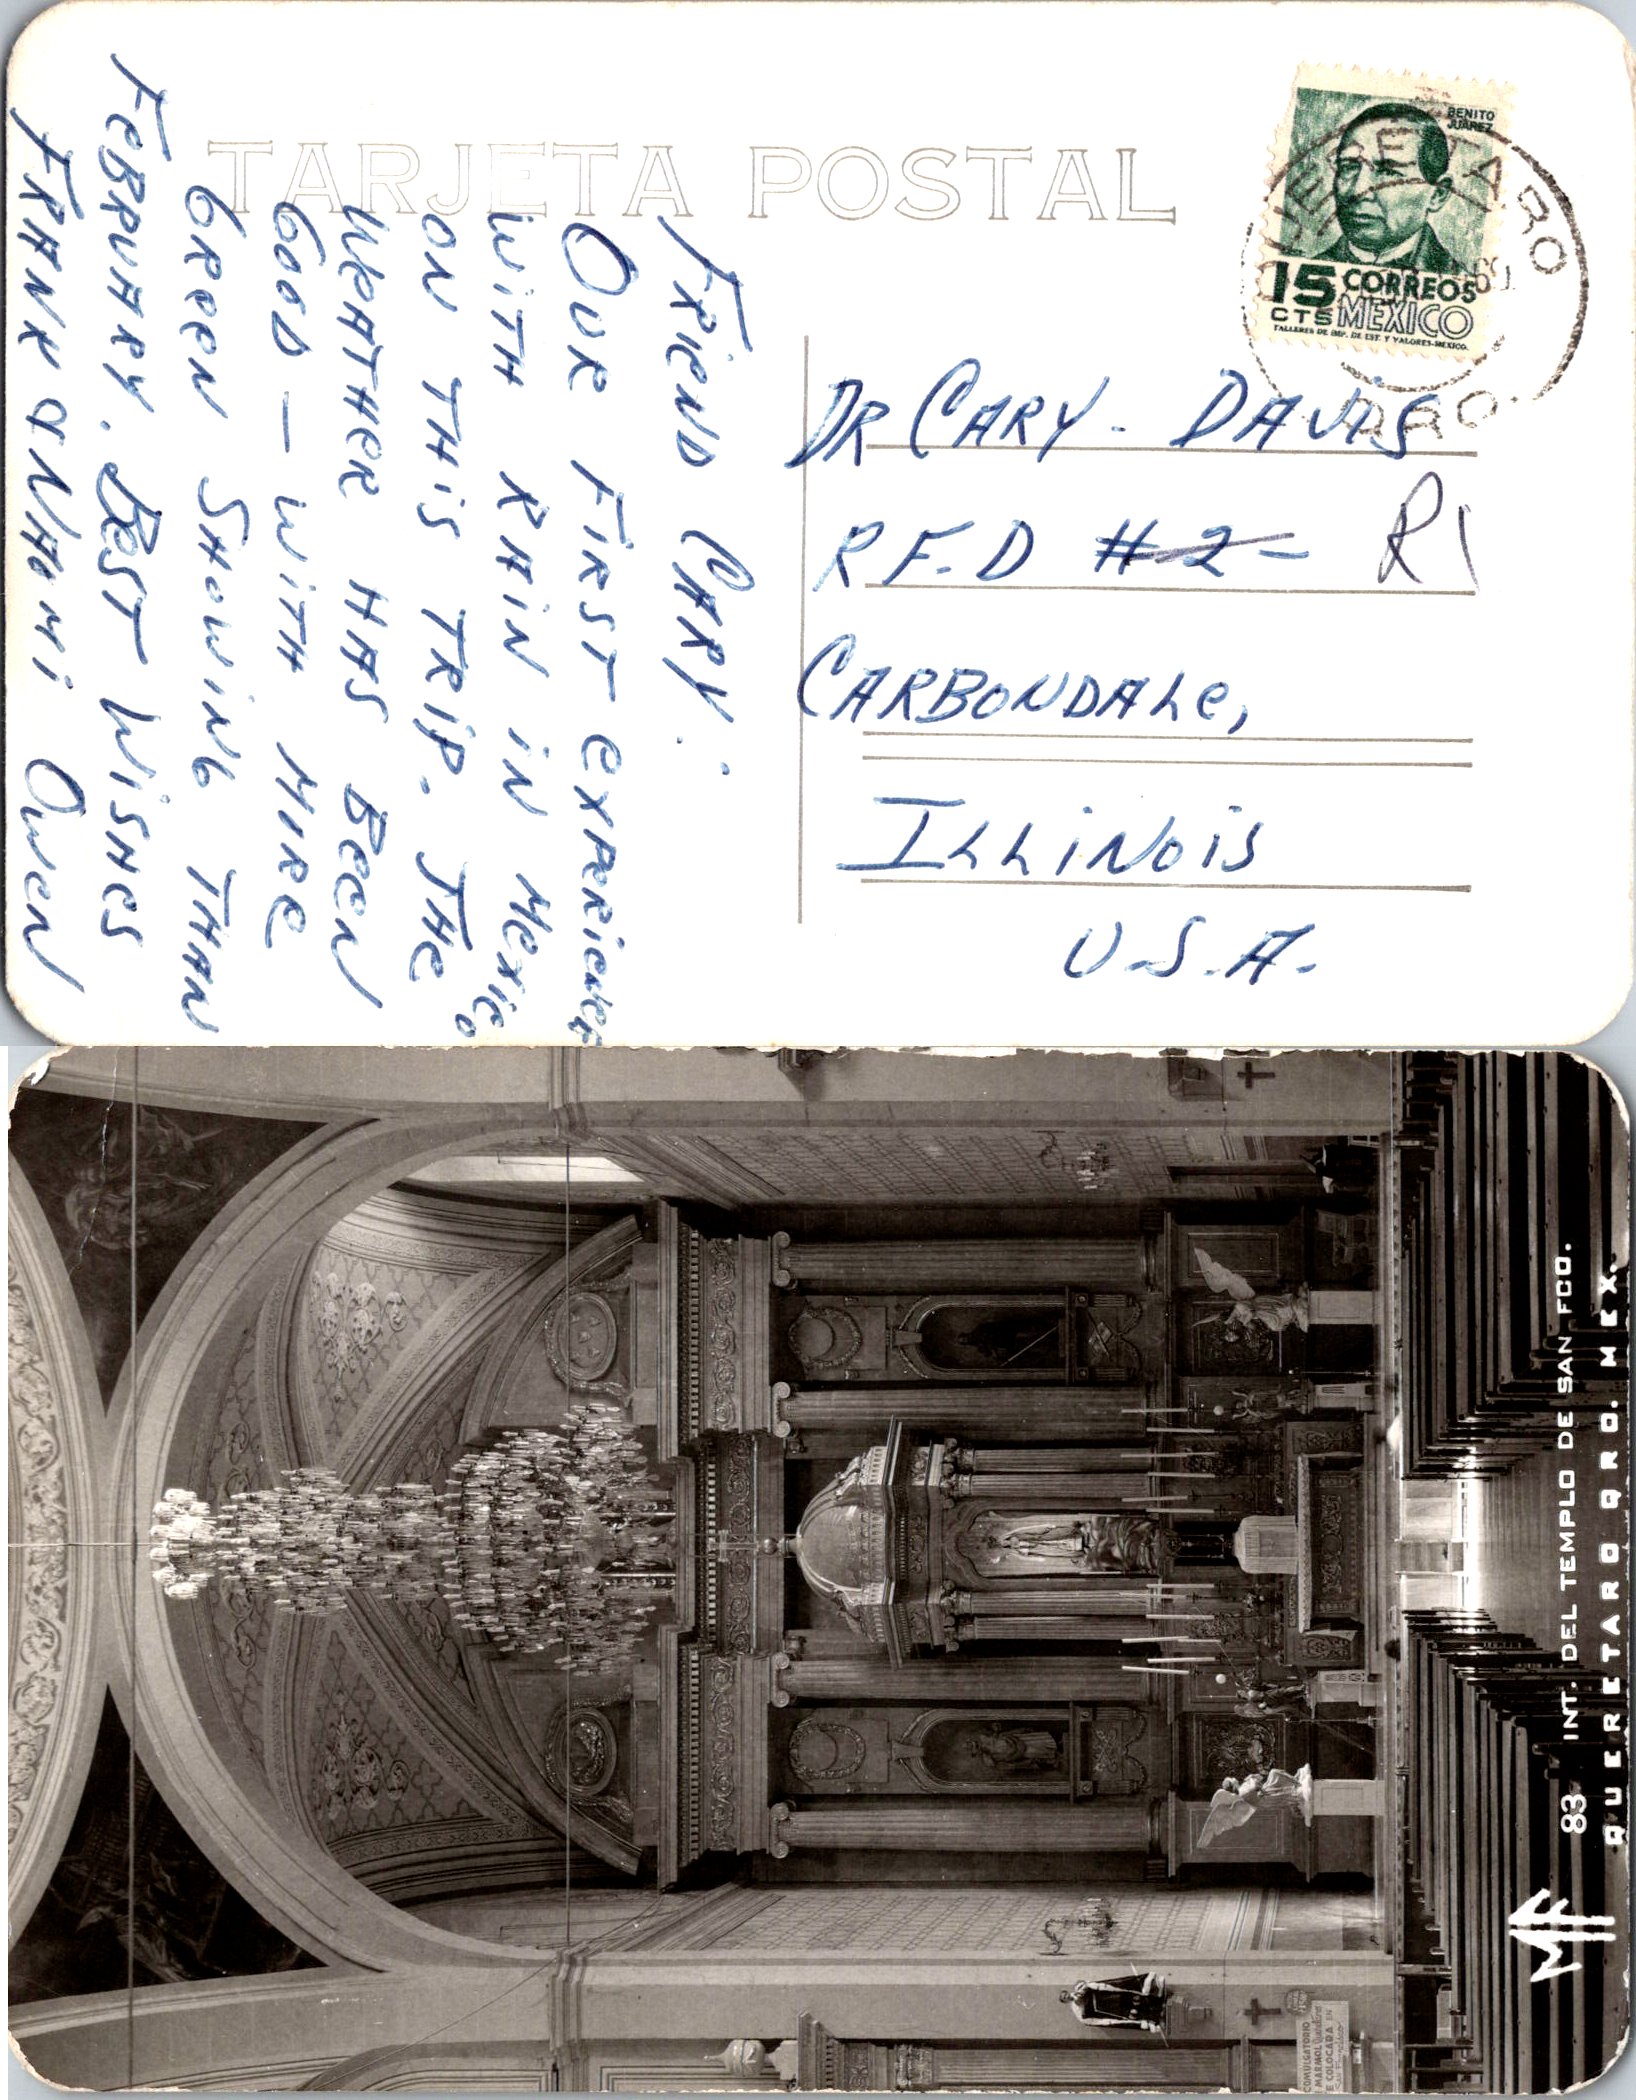 TARJETA POSTAL
BENITO
JUAREZ
15 CTS
CORREOS
MEXICO
TALLERES DE IMP. DE EST. Y VALORES-MEXICO.
QUERETARO
QRO.
FRIEND CARY:
OUR FIRST EXPERIENCE
WITH RAIN IN MEXICO
ON THIS TRIP. THE
WEATHER HAS BEEN
GOOD — WITH MORE
GREEN SHOWING THAN
FEBRUARY. BEST WISHES
FRANK & NAOMI OWEN
DR CARY. DAVIS
R F.D #2- R1
CARBONDALE,
ILLINOIS
U.S.A.
83- INT. DEL TEMPLO DE SAN FCO.
QUERETARO QRO. MEX.
MF
COMULGATORIO
MARMOL
COLOCARA EN